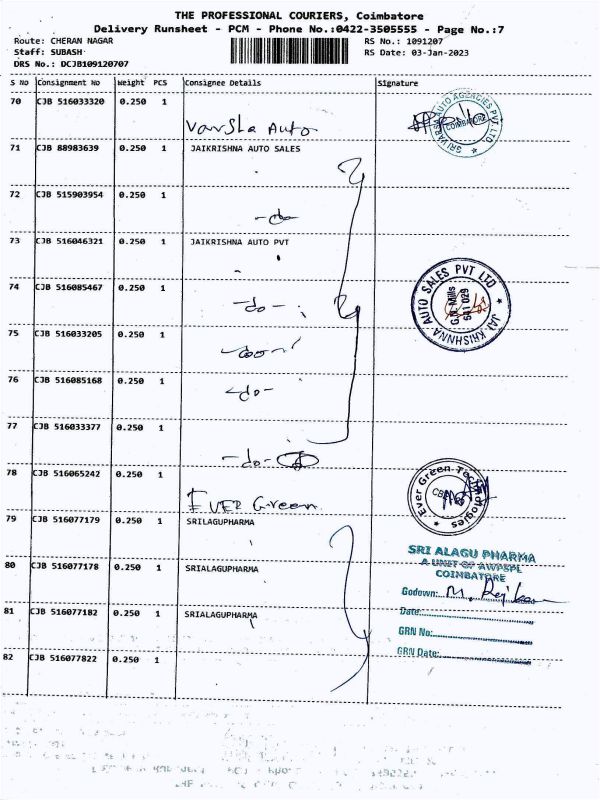 THE PROFESSIONAL COURIERS, Coimbatore
Delivery Runsheet - PCM - Phone No.:0422-3505555 - Page No.:7
Route: CHERAN NAGAR RS No.: 1091207
Staff: SUBASH RS Date: 03-Jan-2023
DRS No.: DCJB109120707
S NO Consignment No Weight PCS Consignee Details Signature
70 CJB 516033320 0.250 1
Varsha Auto
SRI VARSHA AUTO AGENCIES PVT LTD
COIMBATORE
71 CJB 88983639 0.250 1 JAIKRISHNA AUTO SALES
72 CJB 515903954 0.250 1
-do-
73 CJB 516046321 0.250 1 JAIKRISHNA AUTO PVT
JAI KRISHNNA AUTO SALES PVT LTD
G.N. Mills
641 029
74 CJB 516085467 0.250 1
-do-
75 CJB 516033205 0.250 1
-do-
76 CJB 516085168 0.250 1
-do-
77 CJB 516033377 0.250 1
-do-
78 CJB 516065242 0.250 1
EVER Green
Ever Green Technologies
79 CJB 516077179 0.250 1 SRILAGUPHARMA
80 CJB 516077178 0.250 1 SRIALAGUPHARMA
81 CJB 516077182 0.250 1 SRIALAGUPHARMA
82 CJB 516077822 0.250 1
SRI ALAGU PHARMA
A UNIT OF AWPSPL
COIMBATORE
Godown:
Date:
GRN No:
GRN Date: